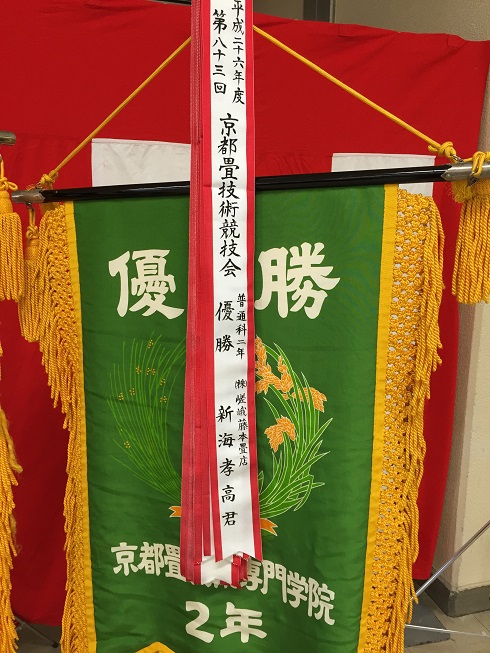 平成二十六年度
第八十三回
京都畳技術競技会
普通科二年
優勝
㈱嵯峨藤本畳店
新海孝高君
優勝
京都畳 専門学院
2年